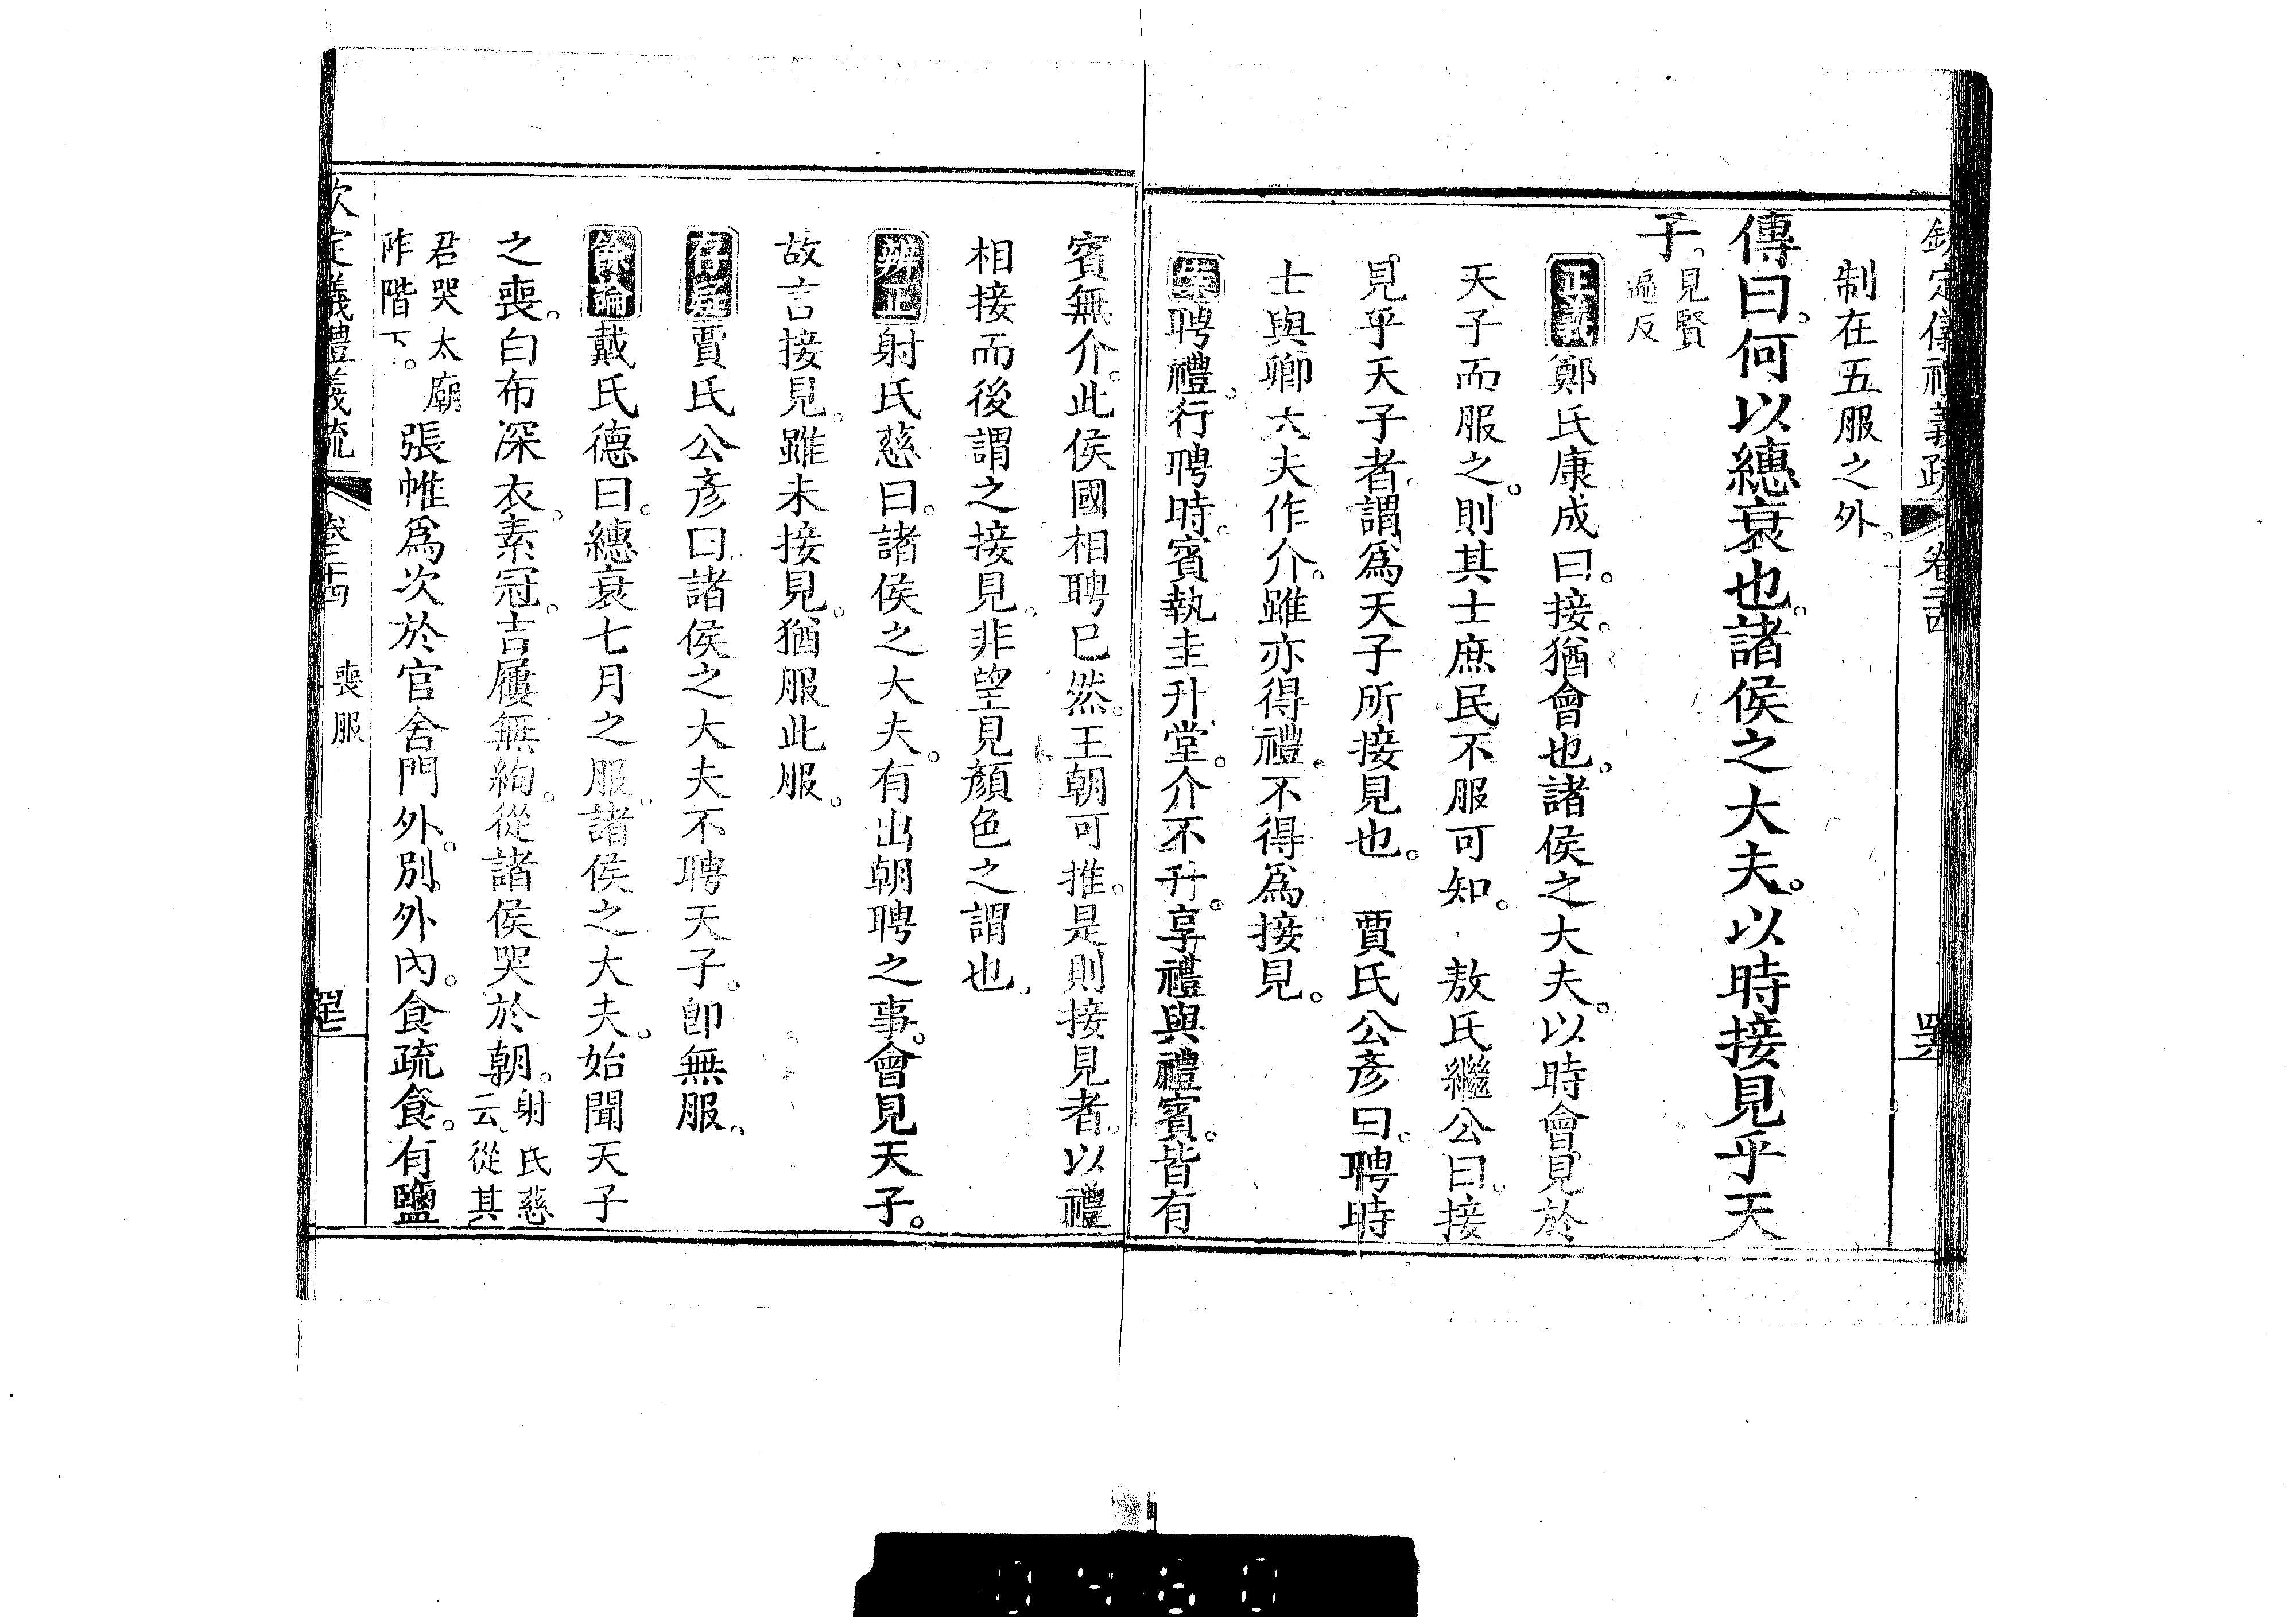 欽定儀禮義疏 卷二十四 四十六
制在五服之外。
傳曰。何以繐衰也。諸侯之大夫。以時接見乎天
子。見賢遍反
正義鄭氏康成曰。接。猶會也。諸侯之大夫。以時會見於
天子而服之。則其士庶民不服可知。 敖氏繼公曰。接
見乎天子者。謂爲天子所接見也。 賈氏公彥曰。聘時
士與卿大夫作介。雖亦得禮。不得爲接見。
案聘禮。行聘時。賓執圭升堂。介不升。享禮與禮賓。皆有
賓無介。此侯國相聘已然。王朝可推。是則接見者。以禮
相接而後謂之接見。非望見顏色之謂也。
辨正射氏慈曰。諸侯之大夫。有出朝聘之事。會見天子。
故言接見。雖未接見。猶服此服。
存疑賈氏公彥曰。諸侯之大夫不聘天子。卽無服。
餘論戴氏德曰。繐衰七月之服。諸侯之大夫。始聞天子
之喪。白布深衣。素冠。吉屨無絇。從諸侯哭於朝。射氏慈云。從其
君哭太廟阼階下。張帷爲次於官舍門外。別外內。食疏食。有鹽
欽定儀禮義疏 卷二十四 喪服 四十七
0480